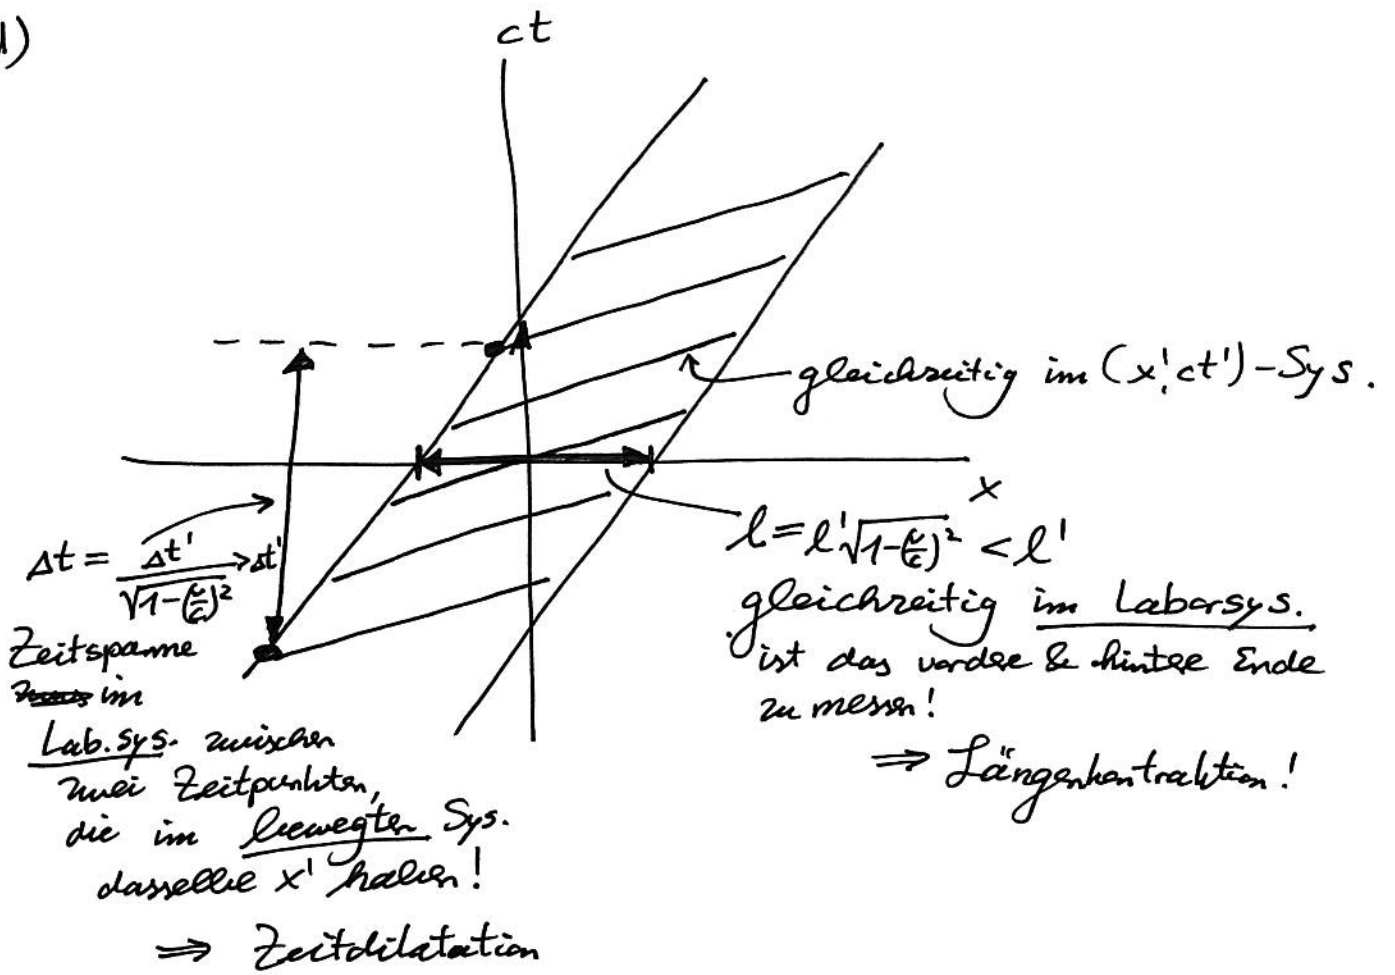 d)
ct
gleichzeitig im (x',ct')-Sys.
x
l = l'√1-(v/c)² < l'
gleichzeitig im Laborsys.
ist das vordere & hintere Ende
zu messen!
⇒ Längenkontraktion!
Δt = Δt'/√1-(v/c)² > Δt'
Zeitspanne
im
Lab.sys. zwischen
zwei Zeitpunkten,
die im bewegten Sys.
dasselbe x' haben!
⇒ Zeitdilatation